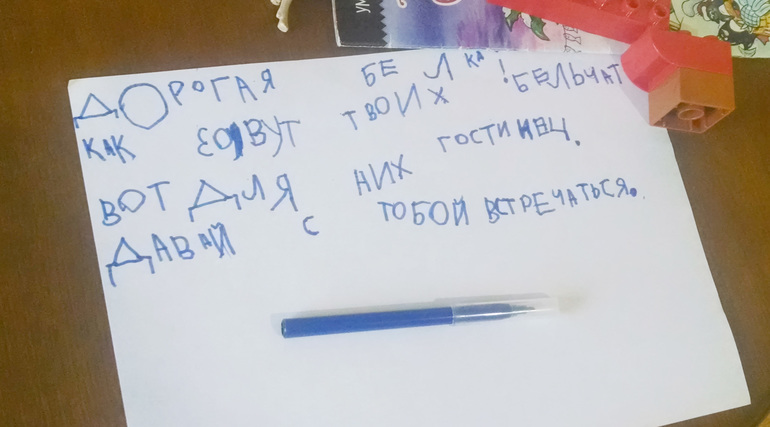 УМ
ДОРОГАЯ БЕЛКА!
КАК ЗОВУТ ТВОИХ БЕЛЬЧАТ
ВОТ ДЛЯ НИХ ГОСТИНЕЦ.
ДАВАЙ С ТОБОЙ ВСТРЕЧАТЬСЯ.